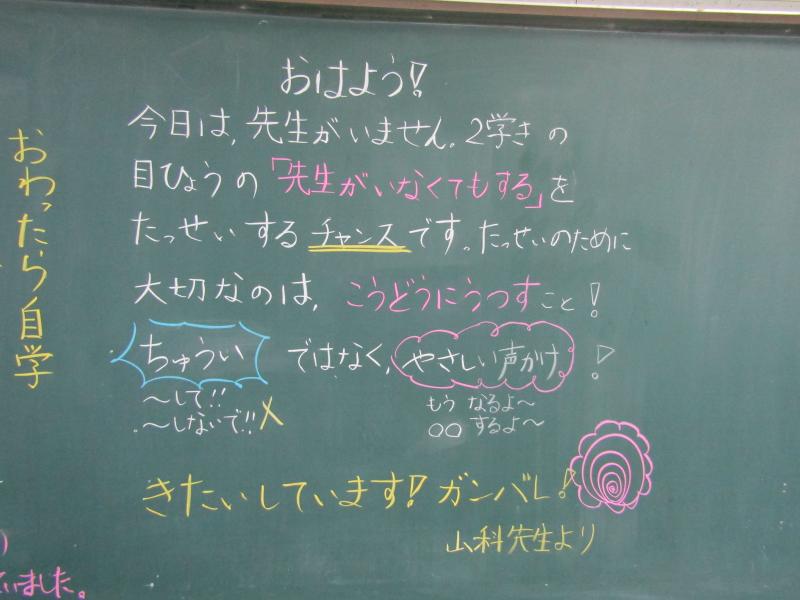 おはよう!
今日は,先生がいません。2学きの
目ひょうの「先生がいなくてもする」を
たっせいするチャンスです。たっせいのために
大切なのは,こうどうにうつすこと!
ちゅうい ではなく,やさしい声かけ!
〜して!!
〜しないで!!×
もう なるよ〜
○○ するよ〜
きたいしています!ガンバレ!
山科先生より
おわったら自学
いました。